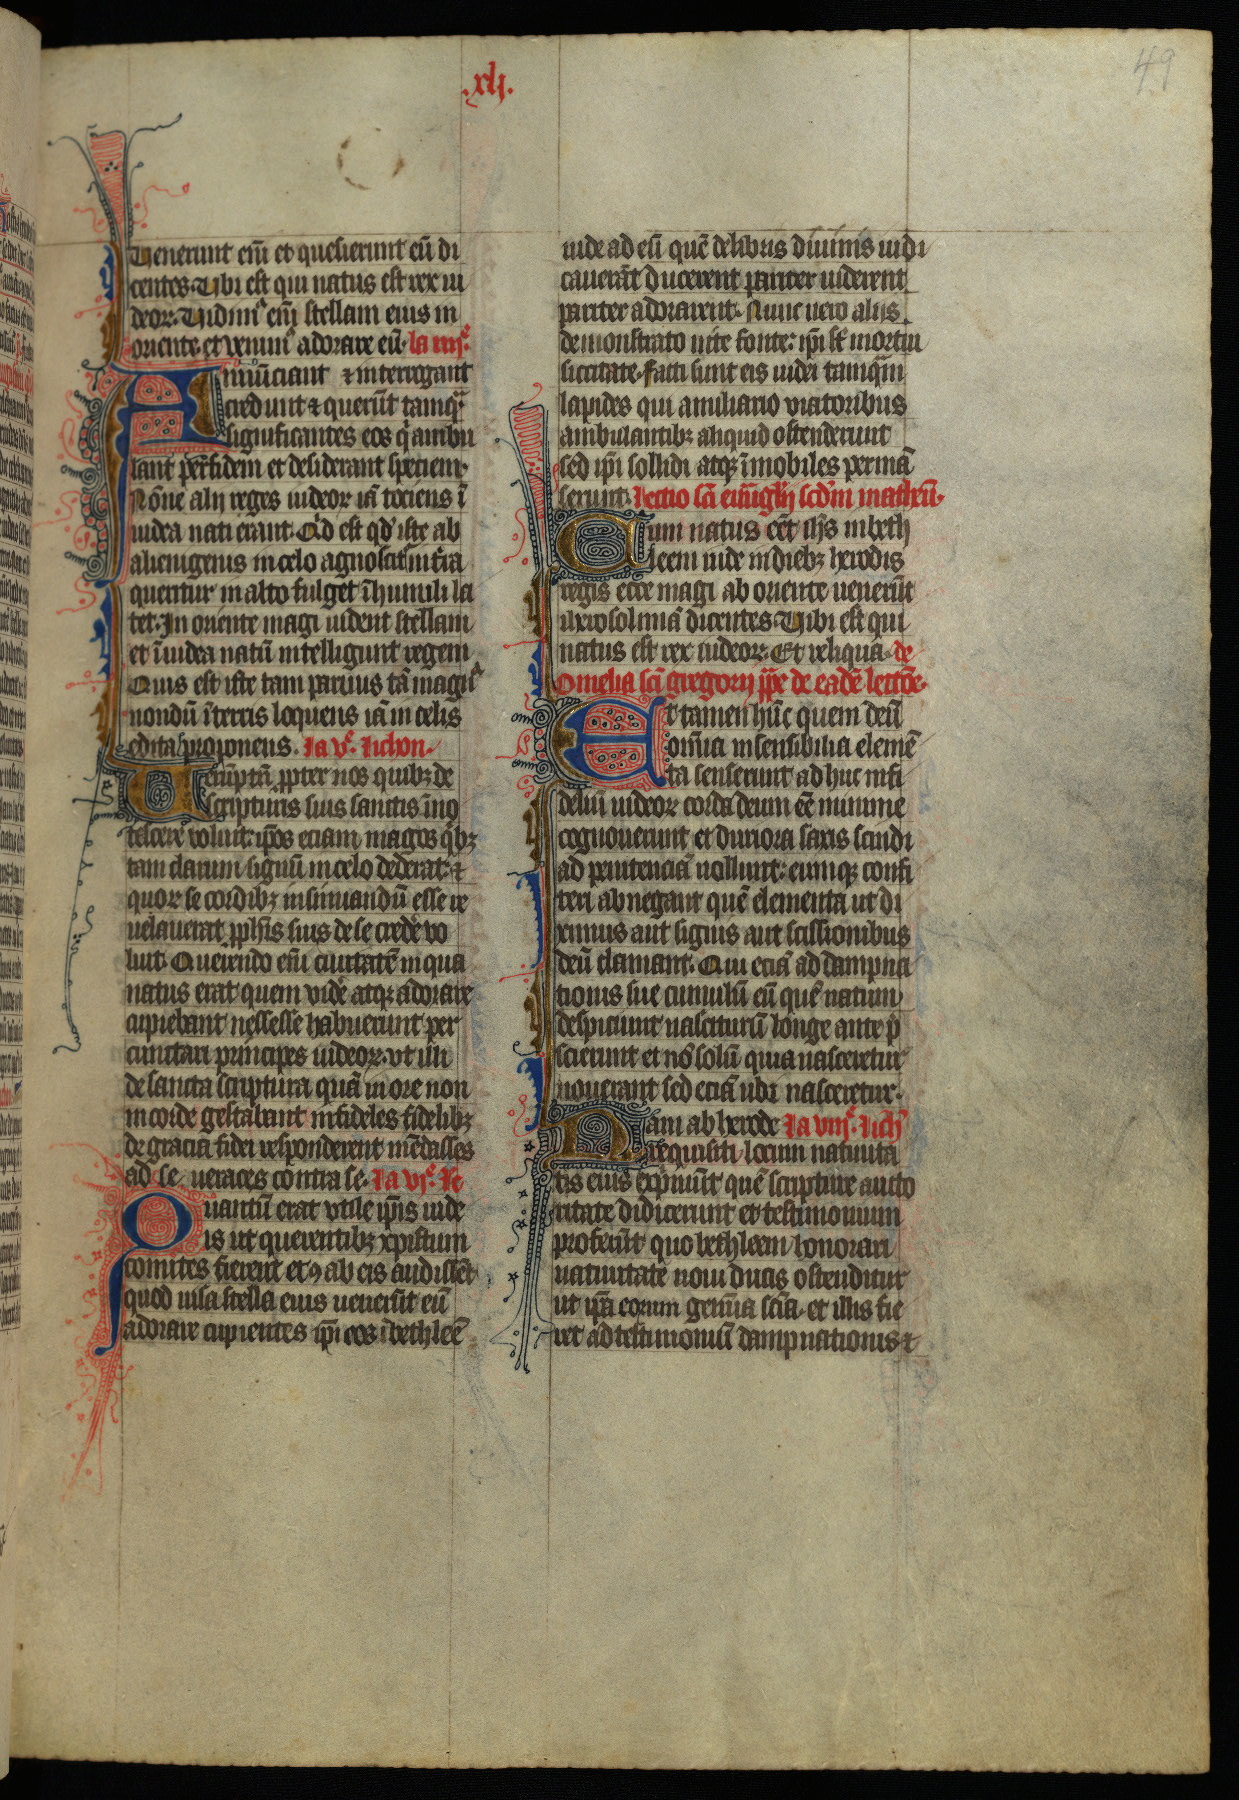 .xlj.
49
Uenerunt eni᷑ et quesierunt eu᷑ di
centes. Ubi est qui natus est rex iu
deor. Vidim᷒ eni᷑ stellam eius in
oriente et venim᷒ adorare eu᷑. la iiij.ͤ
Annu᷑ciant et interrogant
credunt et queru᷑t tamq̄ᷓ
significantes eos q̄ ambu
lant per fidem et desiderant speciem.
No᷑ne alij reges iudeor ia᷑ tociens i᷑
iudea nati erant. Q͛d est qd᷑ iste ab
alienigenis in celo agnoscit᷑ in t᷑ra
queritur in alto fulget i᷑ humili la
tet. In oriente magi vident stellam
et i᷑ iudea natu᷑ intelligunt regem
Quis est iste tam paruus ta᷑ magn᷒
nondu᷑ i᷑ terris loquens ia᷑ in celis
edita proponens. la v.ͤ Iichon.
Ueru᷑pta᷑ ꝓpter nos quibꝫ de
scripturis suis sanctis i᷑no
tescere voluit: ip᷑os eciam magos q᷑bꝫ
tam clarum signu᷑ in celo dederat: et
quor se cordibꝫ insinuandu᷑ esse re
uelauerat ꝓph᷑is suis de se crede᷑ vo
luit. Querendo eni᷑ ciuitate᷑ in qua
natus erat quem vide᷑ atqꝫ adorare
cupiebant nessesse habuerunt per
cunctari principes iudeor. vt illi
de sancta scriptura qua᷑ in ore non
in corde gestabant infideles fidelibꝫ
de gracia fidei responderent me᷑daces
ad se veraces contra se. la vj.ͤ R
Quantu᷑ erat vtile ip᷑is iude
is ut querentibꝫ xpistum
comites fierent et ꝯ ab eis audisse᷑t
quod uisa stella eius veneru᷑t eu᷑
adorare cupientes ip᷑i eos i᷑ bethlee᷑
iude ad eu᷑ que᷑ de libris diuinis iudi
cauera᷑t ducerent pariter viderent
pariter adorarent. Nunc uero alijs
demonstrato uite fonte: ip᷑i su᷑t mortui
siccitate. facti sunt eis iudei tamqua᷑
lapides qui a miliario viatoribus
ambulantibꝫ aliquid ostenderunt
sed ip᷑i sollidi atqꝫ i᷑mobiles perma᷑
serunt. Lectio sc᷑i ewangelij scd᷑m matheu᷑.
Cum natus e᷑et ih᷑s in beth
leem iude in diebꝫ herodis
regis ecce magi ab oriente veneru᷑t
iherosolima᷑ dicentes. Ubi est qui
natus est rex iudeor. Et reliqua. de
Omelia sc᷑i gregorij pp᷑e de eade᷑ lect᷑oe.
Et tamen hu᷑c quem deu᷑
om᷑ia insensibilia eleme᷑
ta senserunt adhuc infi
delium iudeor corda deum e᷑e minime
cognouerunt et duriora saxis scindi
ad penitencia᷑ nollunt: eumqꝫ confi
teri abnegant que᷑ elementa ut di
ximus aut signis aut scissionibus
deu᷑ clamant. Qui ecia᷑ ad dampna
tionis sue cumulu᷑ eu᷑ que᷑ natum
despiciunt nasciturum longe ante p᷑
scierunt et no᷑ solu᷑ quia nasceretur
nouerant sed ecia᷑ ubi nasceretur.
Nam ab herode la viij.ͤ Iich
requisiti locum natiuita
tis eius exp᷑mu᷑t que᷑ scripture aucto
ritate didicerunt et testimonium
proferu᷑t quo bethleem honorari
natiuitate noui ducis ostenditur
ut ip᷑a eorum gem᷑ia sci᷑a. et illis fie
ret ad testimoniu᷑ dampnationis et